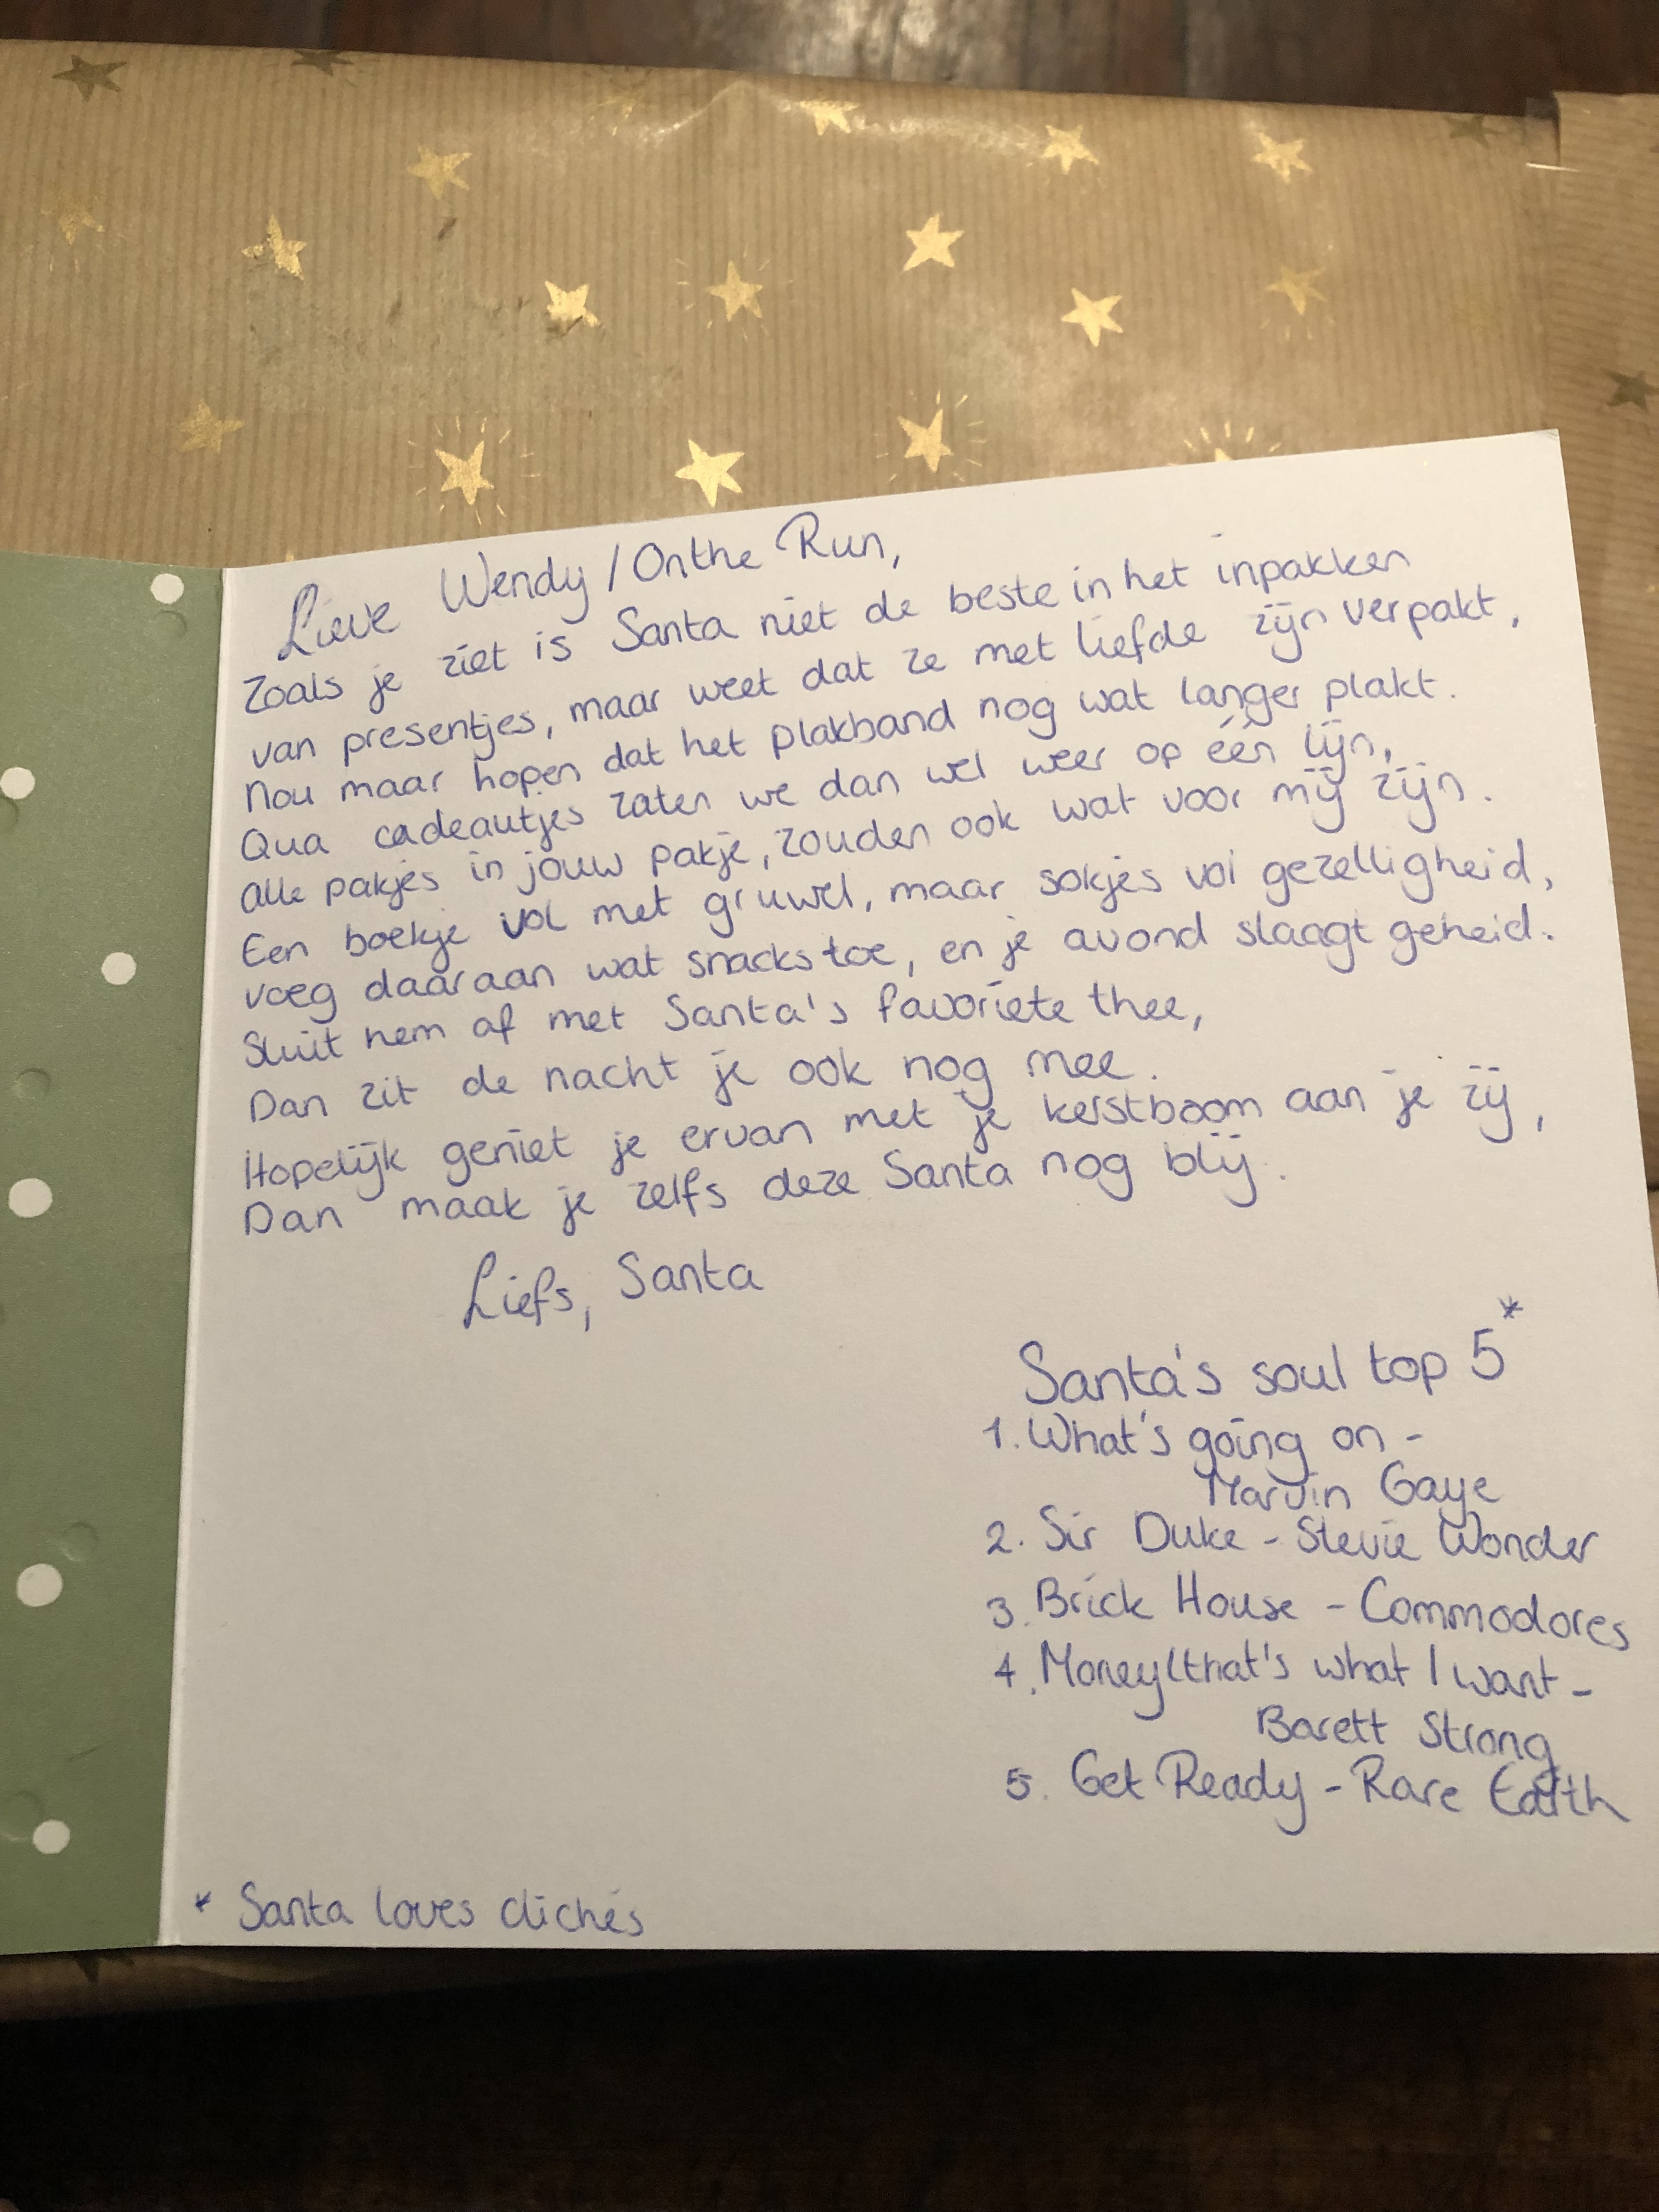 Lieve Wendy / Onthe Run,
Zoals je ziet is Santa niet de beste in het inpakken
van presentjes, maar weet dat ze met liefde zijn verpakt,
Nou maar hopen dat het plakband nog wat langer plakt.
Qua cadeautjes zaten we dan wel weer op één lijn,
Alle pakjes in jouw pakje, zouden ook wat voor mij zijn.
Een boekje vol met gruwel, maar sokjes vol gezelligheid,
voeg daaraan wat snacks toe, en je avond slaagt geheid.
Sluit hem af met Santa's favoriete thee,
Dan zit de nacht je ook nog mee.
Hopelijk geniet je ervan met je kerstboom aan je zij,
Dan maak je zelfs deze Santa nog blij.
Liefs, Santa
Santa's soul top 5*
1. What's going on -
Marvin Gaye
2. Sir Duke - Stevie Wonder
3. Brick House - Commodores
4. Money(that's what I want -
Barett Strong
5. Get Ready - Rare Earth
* Santa loves clichés